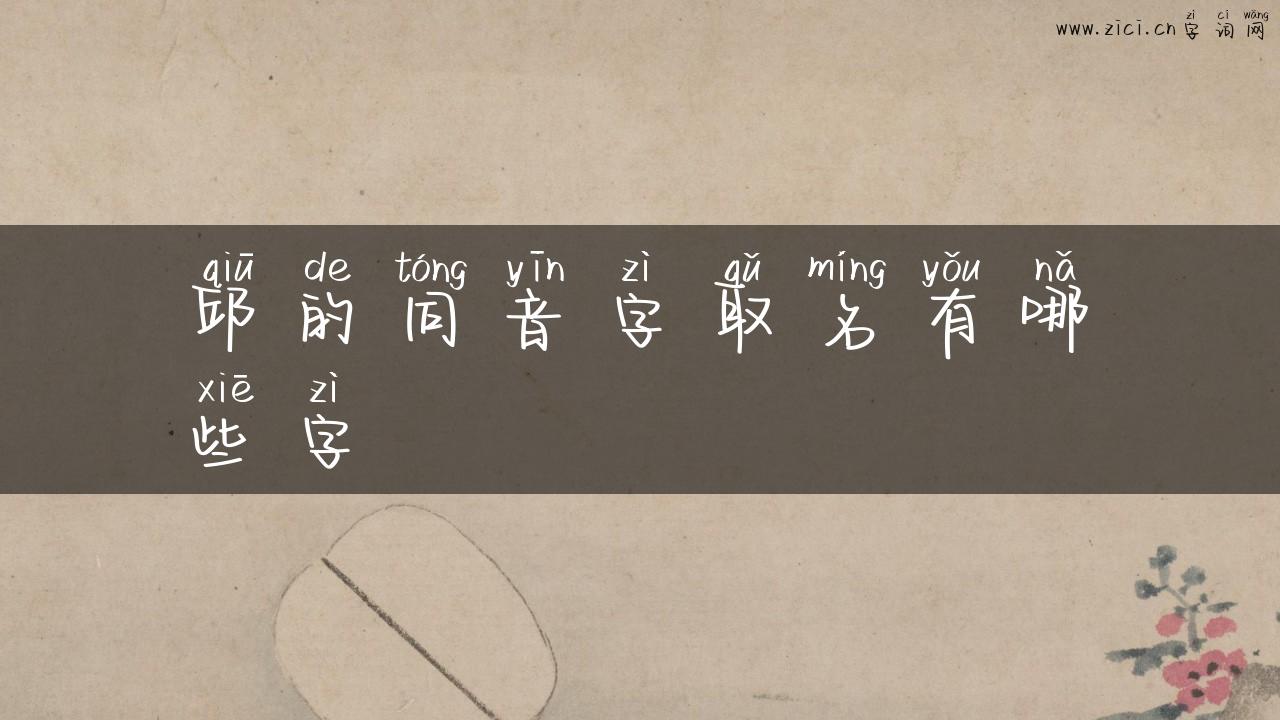 zì cí wǎng
www.zici.cn字词网
qiū de tóng yīn zì qǔ míng yǒu nǎ
邱的同音字取名有哪
xiē zì
些字